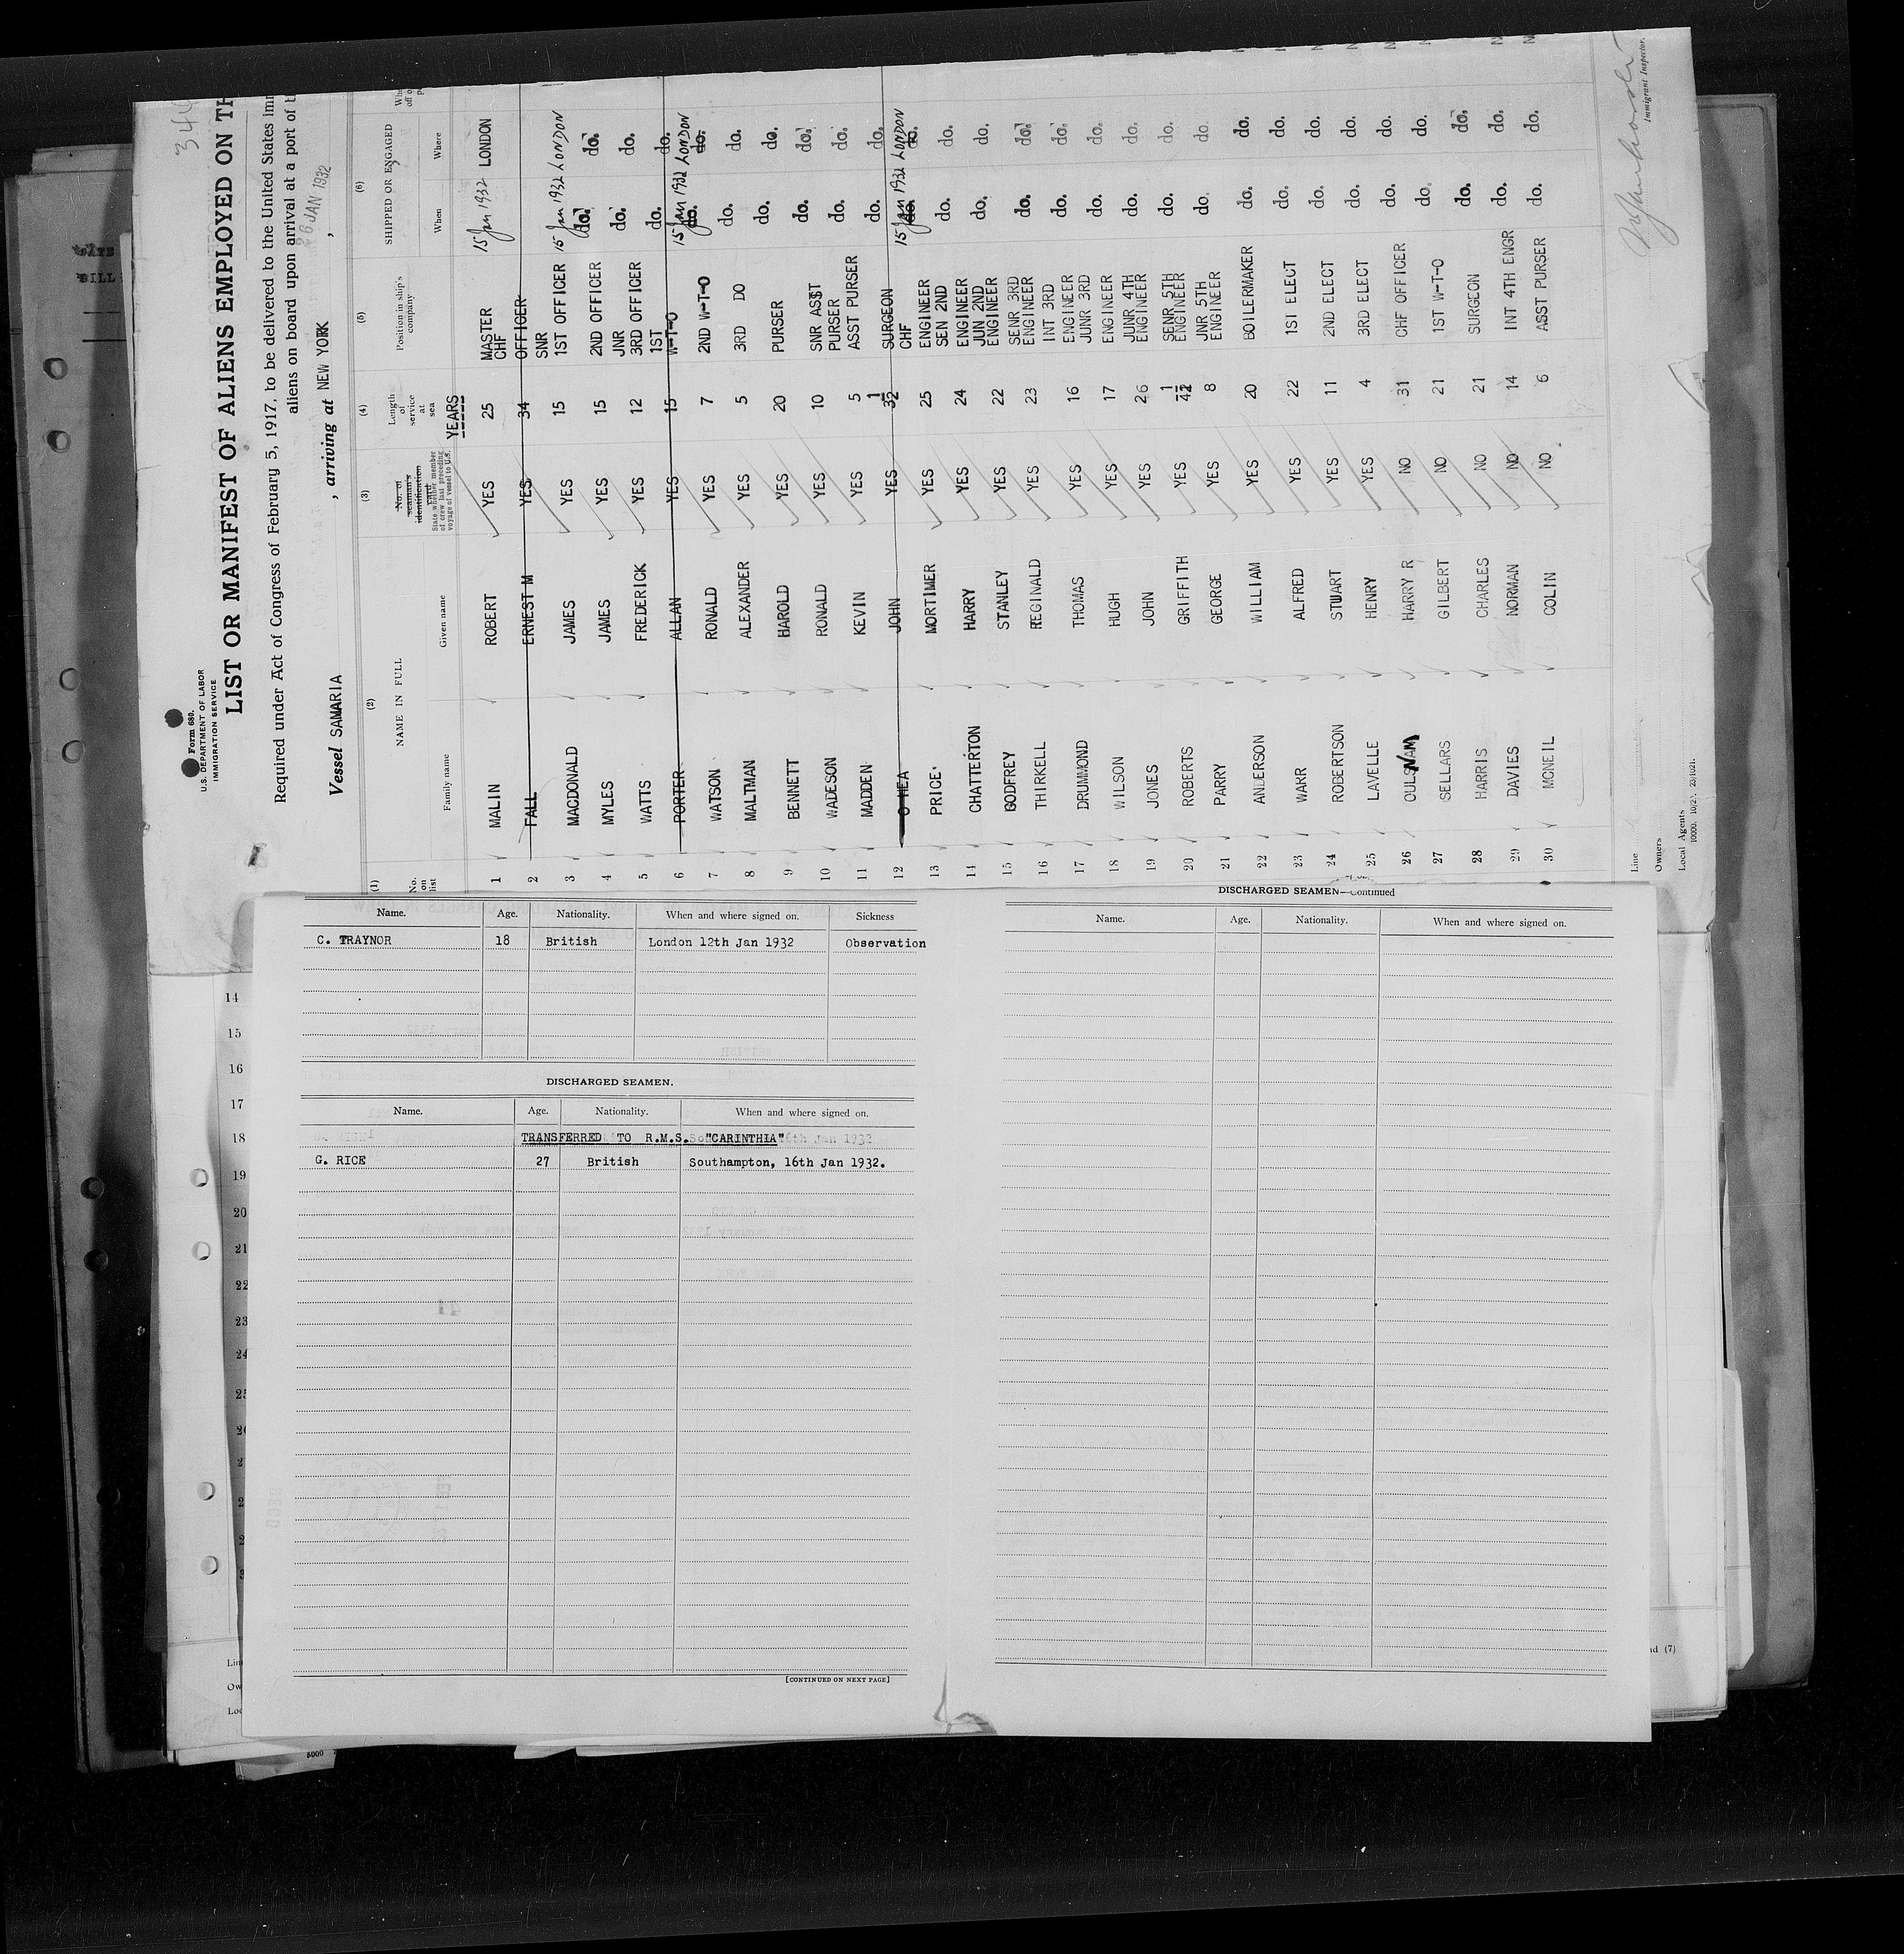 Form 680.
U.S. DEPARTMENT OF LABOR
IMMIGRATION SERVICE
LIST OR MANIFEST OF ALIENS EMPLOYED ON TH
Required under Act of Congress of February 5, 1917, to be delivered to the United States imm
aliens on board upon arrival at a port of t
Vessel SAMARIA , arriving at NEW YORK , 26 JAN 1932
(1) (2) (3) (4) (5) (6)
No. on list NAME IN FULL Family name Given name No. of seaman's identification card State whether member of crew last preceding voyage of vessel to U.S. Length of service at sea Position in ship's company SHIPPED OR ENGAGED When Where
YEARS
1 MALIN ROBERT YES 25 MASTER 15 Jan 1932 LONDON
2 FALL ERNEST M YES 34 CHF OFFICER
3 MACDONALD JAMES YES 15 SNR 1ST OFFICER 15 Jan 1932 LONDON
4 MYLES JAMES YES 15 2ND OFFICER do. do.
5 WATTS FREDERICK YES 12 JNR 3RD OFFICER do. do.
6 PORTER ALLAN YES 15 1ST W-T-O do. do.
7 WATSON RONALD YES 7 2ND W-T-O 15 Jan 1932 LONDON do. do.
8 MALTMAN ALEXANDER YES 5 3RD DO do. do.
9 BENNETT HAROLD YES 20 PURSER do. do.
10 WADESON RONALD YES 10 SNR ASST PURSER do. do.
11 MADDEN KEVIN YES 5 ASST PURSER do. do.
12 O HEA JOHN YES 3 1/2 SURGEON do. do.
13 PRICE MORTIMER YES 25 CHF ENGINEER 15 Jan 1932 LONDON do. do.
14 CHATTERTON HARRY YES 24 SEN 2ND ENGINEER do. do.
15 GODFREY STANLEY YES 22 JUN 2ND ENGINEER do. do.
16 THIRKELL REGINALD YES 23 SENR 3RD ENGINEER do. do.
17 DRUMMOND THOMAS YES 16 INT 3RD ENGINEER do. do.
18 WILSON HUGH YES 17 JUNR 3RD ENGINEER do. do.
19 JONES JOHN YES 26 JUNR 4TH ENGINEER do. do.
20 ROBERTS GRIFFITH YES 4 1/2 SENR 5TH ENGINEER do. do.
21 PARRY GEORGE YES 8 JNR 5TH ENGINEER do. do.
22 ANDERSON WILLIAM YES 20 BOILERMAKER do. do.
23 WARR ALFRED YES 22 1ST ELECT do. do.
24 ROBERTSON STUART YES 11 2ND ELECT do. do.
25 LAVELLE HENRY YES 4 3RD ELECT do. do.
26 OULSNAM HARRY R NO 31 CHF OFFICER do. do.
27 SELLARS GILBERT NO 21 1ST W-T-O do. do.
28 HARRIS CHARLES NO 21 SURGEON do. do.
29 DAVIES NORMAN NO 14 INT 4TH ENGR do. do.
30 MCNEIL COLIN NO 6 ASST PURSER do. do.
Line
Owners
Local Agents
Immigrant Inspector.
Name. Age. Nationality. When and where signed on. Sickness
C. TRAYNOR 18 British London 12th Jan 1932 Observation
DISCHARGED SEAMEN.
Name. Age. Nationality. When and where signed on.
TRANSFERRED TO R.M.S. "CARINTHIA"
G. RICE 27 British Southampton, 16th Jan 1932.
[CONTINUED ON NEXT PAGE]
DISCHARGED SEAMEN—Continued
Name. Age. Nationality. When and where signed on.
14
15
16
17
18
19
20
21
22
23
24
Lin
Ow
Loc
5000